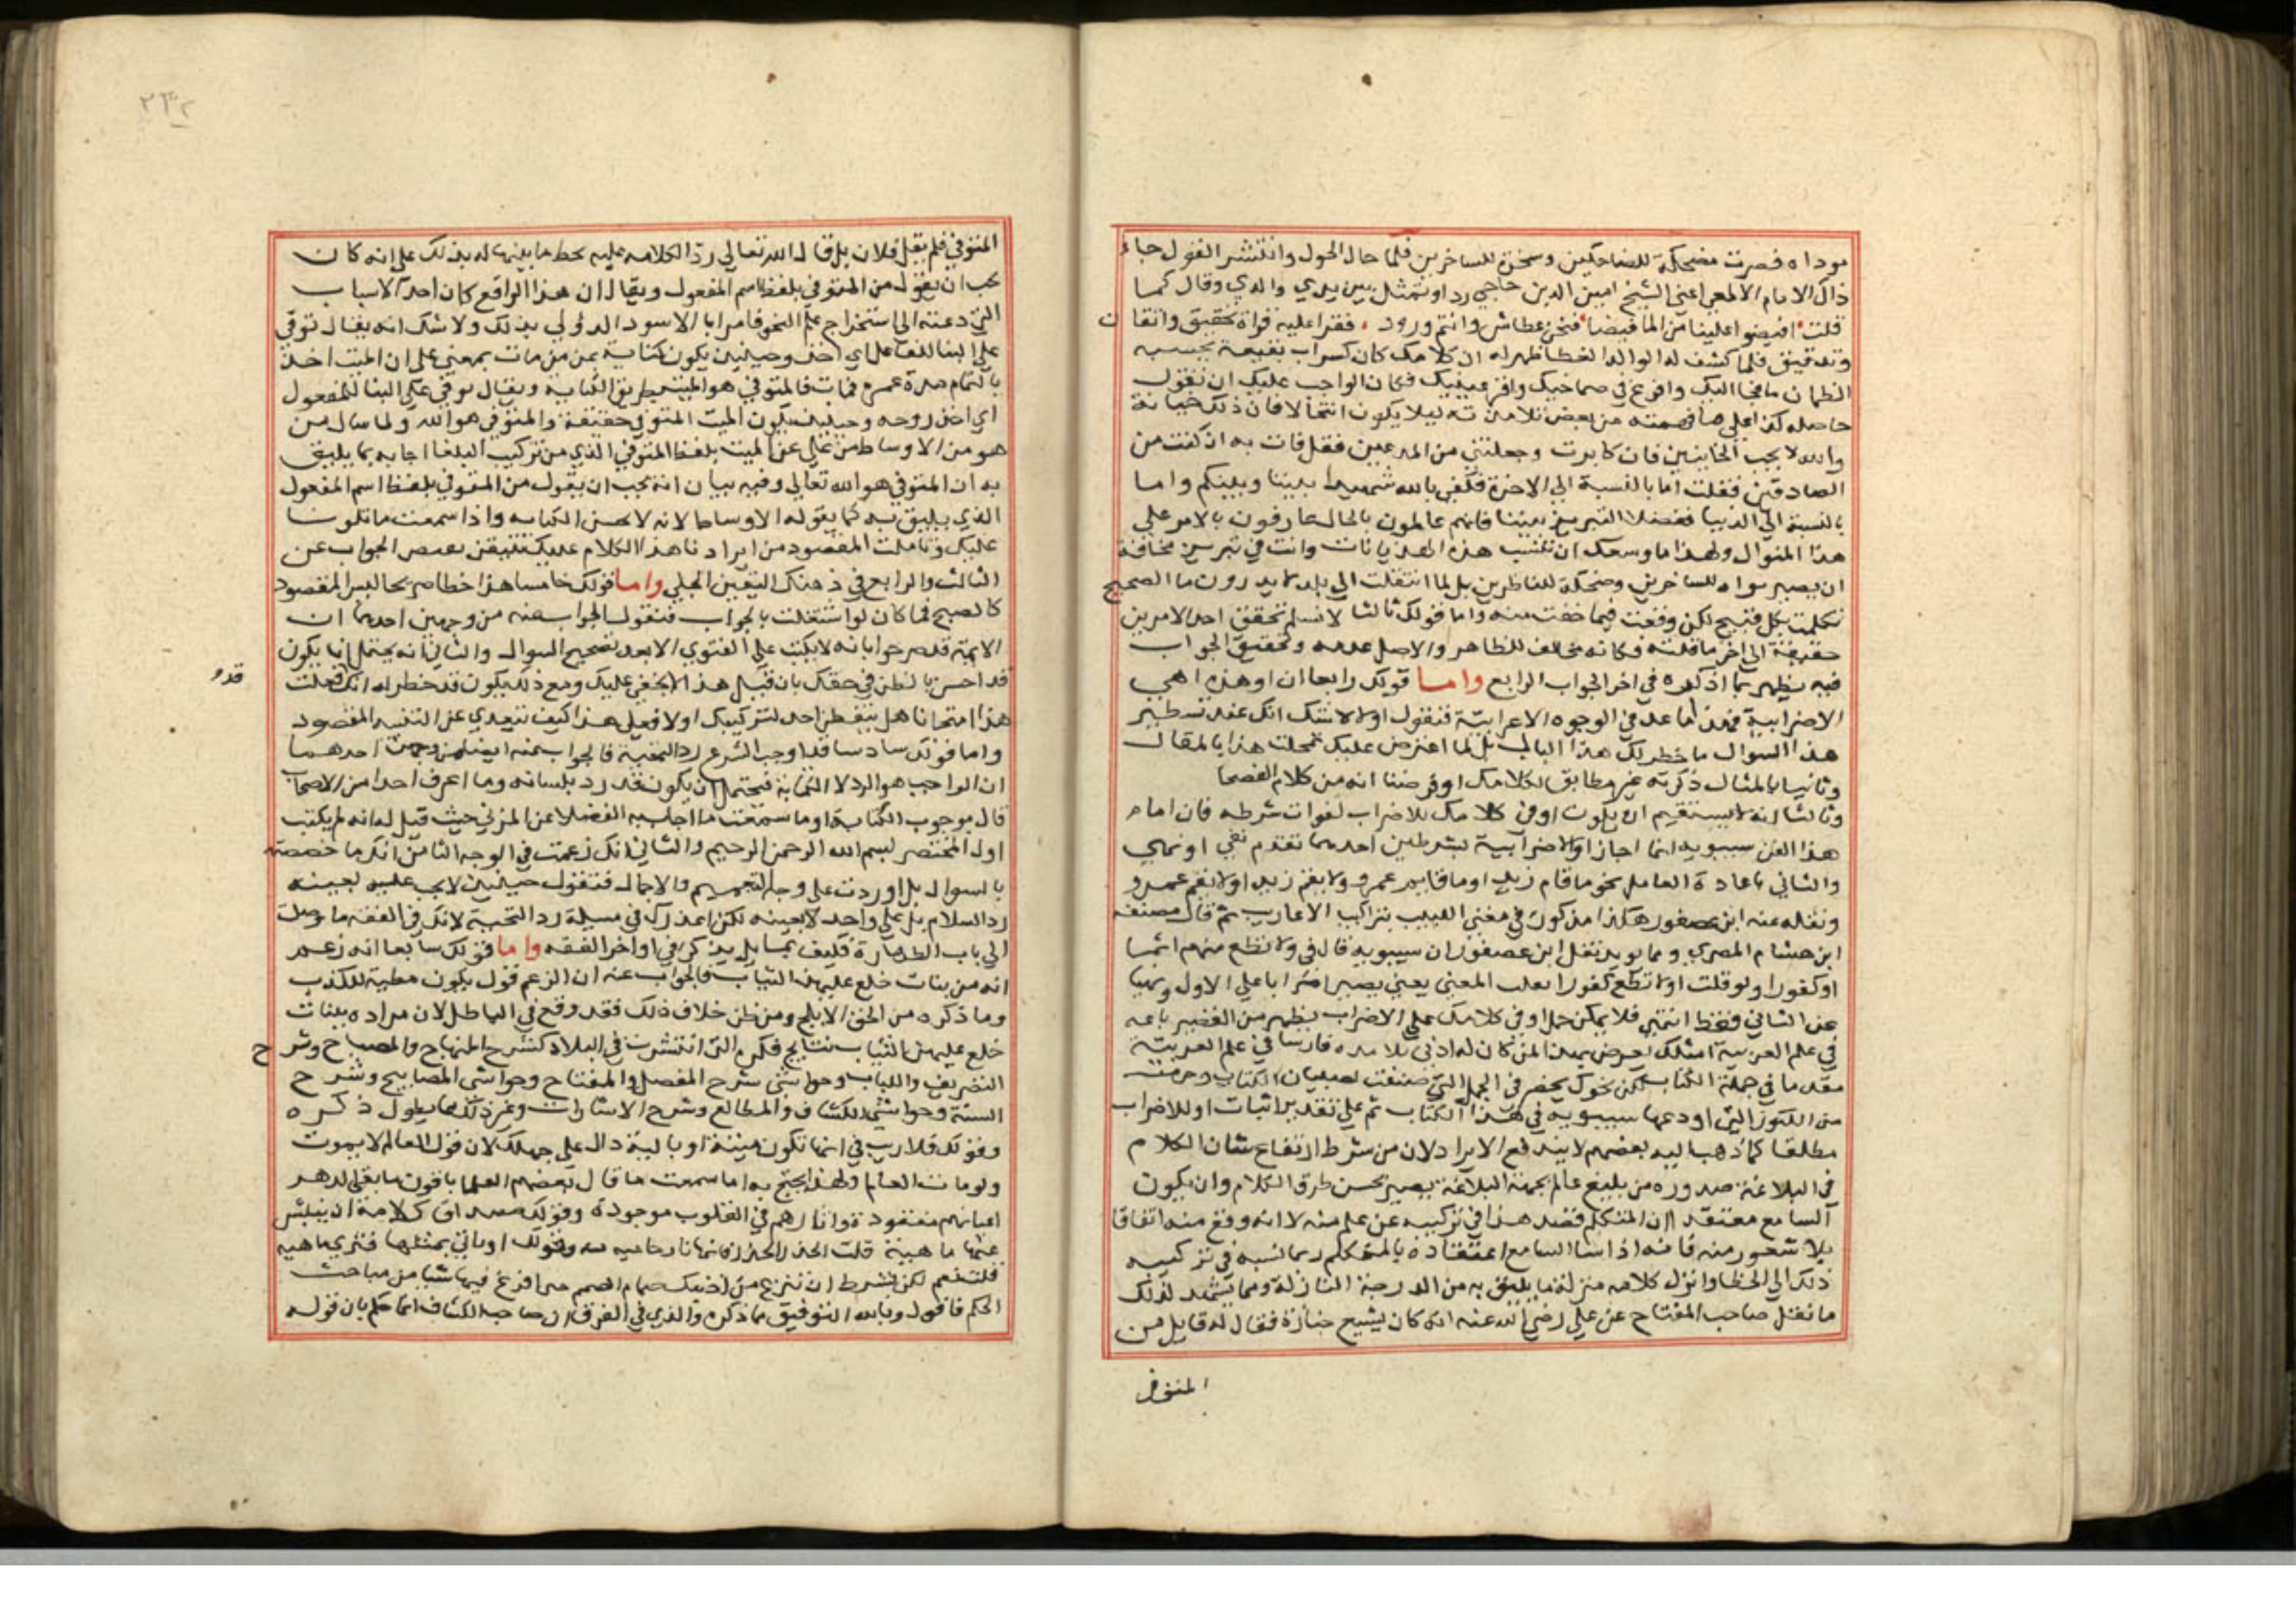 سوداه فصرت مضحكة للضاحكين وسخرة للساخرين فلما حال الحول وانتشر القول جاء
ذاك الامام الالمعي اعني الشيخ امين الدين حاجي ددا وتمثل بين يدي والدي وقال كما
قلت افيضوا علينا من الما فيضا فنحن عطاش وانتم ورود فقرا عليه قراة تحقيق واتقان
وتدقيق فلما كشف له الوالد الغطا ظهر له ان كلامك كان كسراب بقيعة يحسبه
الظمان ما فجا اليك وافرغ في صماخيك واقر عينيك فكان الواجب عليك ان تقول
حاصله كذا على ما فهمته من بعض تلامذته ليلا يكون انتحالا فان ذلك خيانة
والله لا يحب الخاينين فان كابرت وجعلتني من المدعيين فقل فات به ان كنت من
الصادقين فقلت اما بالنسبة الى الاخرة فكفى بالله شهيدا بيننا وبينكم واما
بالنسبة الى الدنيا ففضلا التبريز بيننا فانهم عالمون بالحال عارفون بالامر على
هذا المنوال ولهذا ما وسعك ان تكتب هذه الهذيانات وانت في تبريز مخافة
ان يصير سواه للساخرين وضحكة للناظرين بل لما انتقلت الى بلد لا يدرون ما الصحيح
تكلمت بكل قبيح لكن وقعت فيما خفت منه واما قولك ثالثا لا نسلم تحقق احد الامرين
حقيقة الى اخر ما قلته فكانه مخالف للظاهر والاصل عدمه وتحقيق الجواب
فيه يظهر بما اذكره في اخر الجواب الرابع واما قولك رابعا ان او هذه اهي
الاضرابية فهذا ما عد في الوجوه الاعرابية فنقول اولا لا شك انك عند تسطير
هذا السوال ما خطر لك هذا البال بل لما اعترض عليك تمحلت هذا بالمقال
وثانيا بالمثال ذكرته غير مطابق لكلامك او فرضنا انه من كلام الفصحا
وثالثا انه لا يستقيم ان يكون او في كلامك للاضراب لفوات شرطه فان امام
هذا الفن سيبويه انما اجاز او الاضرابية بشرطين احدهما تقدم نفي او نهي
والثاني باعادة العامل نحو ما قام زيد او ما قام عمرو ولا يقم زيد او لا يقم عمرو
ونقله عنه ابن عصفور هكذا مذكور في مغني اللبيب بتراكيب الاعاريب ثم قال مصنفه
ابن هشام المصري ومما يويد نقل ابن عصفور ان سيبويه قال في ولا تطع منهم اثما
او كفورا ولو قلت او لا تطع كفورا انقلب المعنى يعني يصير اضرابا على الاول ونهيا
عن الثاني فقط انتهى فلا يمكن حمل او في كلامك على الاضراب
في علم العربية امثلك يعرض بهذا لمن كان له ادنى تلامذه فارسا في علم العربية
مقدما في جملة الكتاب لكن نحوك يحضر في الجمل التي صنفت لصبيان الكتاب وحرمت
من الكنوز التي اودعها سيبويه في هذا الكتاب ثم على تقدير اثبات او للاضراب
مطلقا كما ذهب اليه بعضهم لا يندفع الايراد لان من شرط ارتفاع شان الكلام
في البلاغة صدوره من بليغ عالم بجهة البلاغة بصير بحسن طرق الكلام وان يكون
السامع معتقدا ان المتكلم قصد هذا في تركيبه عن علم منه لا انه وقع منه اتفاقا
بلا شعور منه فانه اذا اسا السامع اعتقاده بالمتكلم ربما نسبه في تركيبه
ذلك الى الخطا وانزل كلامه منزلة ما يليق به من الدرجة النازلة ومما يشهد لذلك
ما نقل صاحب المفتاح عن علي رضي الله عنه انه كان يشيع جنازة فقال له قايل من
المتوفى
٢٣٢
المتوفي فلم يقل فلان بل قال الله تعالى ردا لكلامه عليه مخطيا اياه منبها له بذلك على انه كان
يجب ان يقول من المتوفي بلفظ اسم المفعول ويقال ان هذا الواقع كان احد الاسباب
التي دعته الى استخراج علم النحو فامر ابا الاسود الدولي بذلك ولا شك انه يقال توفي
على البنا للفاعل اي اخذ وحينئذ يكون كناية عن من مات بمعنى على ان الميت اخذ
بالتمام مدة عمره فمات فالمتوفي هو الميت بطريق الكناية ويقال توفي على البنا للمفعول
اي اخذ روحه وحينئذ يكون الميت المتوفى حقيقة والمتوفي هو الله ولما سال من
هو من الاوساط من علي عن الميت بلفظ المتوفي الذي من تركيب البلغا اجابه بما يليق
به ان المتوفي هو الله تعالى وفيه بيان انه يجب ان يقول من المتوفى بلفظ اسم المفعول
الذي يليق به كما يقوله الاوساط لانه لا يحسن الكناية واذا سمعت ما تلونا
عليك وتاملت المقصود من ايرادنا هذا الكلام عليك تتيقن الجواب عن
الثالث والرابع في ذهنك اليقين الجلي واما قولك خامسا هذا خطا صريح اليس المقصود
كالصبح فما كان لو اشتغلت بالجواب فنقول الجواب عنه من وجهين احدهما ان
الايمة قد صرحوا بانه لا يكتب على الفتوى الا بعد تصحيح السوال والثاني انه يحتمل ان يكون
قد احسن بالظن في حقك بان قبل هذا لا يخفى عليك ومع ذلك يكون قد خطر له انك فعلت
قدو
هذا امتحانا هل يتفطن احد لتركيبك اولا فعلى هذا كيف تتعدى عن التنبيه المقصود
واما قولك سادسا قد اوجب الشرع رد التحية فالجواب عنه ايضا من وجهين احدهما
ان الواجب هو الرد لا الكتابة فيحتمل ان يكون قد رد بلسانه وما اعرف احدا من الاصحاب
قال بوجوب الكتابة او ما سمعت ما اجاب به الفضلا عن المزني حيث قيل له انه لم يكتب
اول المختصر بسم الله الرحمن الرحيم والثاني انك زعمت في الوجه الثامن انك ما خصصته
بالسوال بل اوردت على وجه التعميم والاجمال فنقول حينئذ لا يجب عليه بعينه
رد السلام بل على واحد لا بعينه لكن اعذرك في مسيلة رد التحية لانك في الفقه ما وصلت
الى باب الطهارة فكيف بمسايل يذكر في اواخر الفقه واما قولك سابعا انه زعم
انه من بنات خلع عليهن الثياب فالجواب عنه ان الزعم قول يكون مطية للكذب
وما ذكره من الحق الابلج ومن ظن خلاف ذلك فقد وقع في الباطل لان مراده ببنات
خلع عليهن الثياب نتايج فكره التي انتشرت في البلاد كشرح المنهاج والمصباح وشرح
التصريف واللباب وحواشي شرح المفصل والمفتاح وحواشي المصابيح وشرح
السنة وحواشي الكشاف والمطالع وشرح الاشارات وغير ذلك مما يطول ذكره
وقولك فلا ريب في انها تكون ميتة او بالية دال على جهلك لان قول العالم لا يموت
ولو مات العالم ولهذا يحتج به اما سمعت ما قال بعضهم العلما باقون ما بقي الدهر
اعيانهم مفقودة واثارهم في القلوب موجودة وقولك
عنها ما هيه قلت الحذر الحذر فانها نار حاميه وقولك او ياتي بمثلها فنرى ما هيه
قلت نعم لكن بشرط ان تنزع من اذنيك صمام الصمم حتى افرغ فيها شيا من مباحث
الحكم فاقول وبالله التوفيق مما ذكره والذي في الفرق ان صاحب الكشاف انما حكم بان قوله